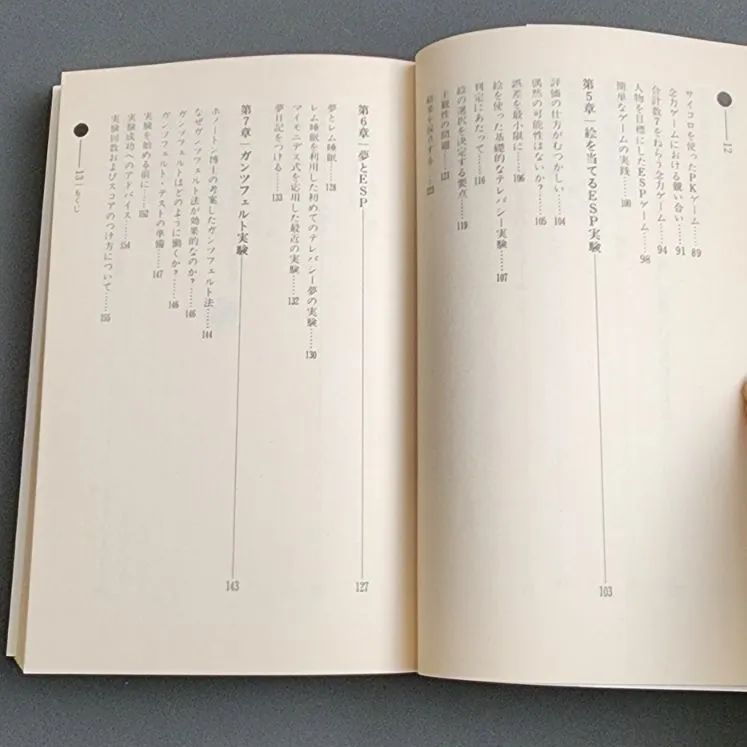 12
サイコロを使ったPKゲーム……89
念力ゲームにおける競い合い……91
合計数7をねらう念力ゲーム……94
人物を目標にしたESPゲーム……98
簡単なゲームの実践……100
第5章—絵を当てるESP実験——103
評価の仕方がむつかしい……104
偶然の可能性はないか?……105
誤差を最小限に……106
絵を使った基礎的なテレパシー実験……107
判定にあたって……116
絵の選択を決定する要点……119
主観性の問題……121
結果を採点する……123
第6章—夢とESP——127
夢とレム睡眠……128
レム睡眠を利用した初めてのテレパシー夢の実験……130
マイモニデス式を応用した最近の実験……132
夢日記をつける……133
第7章—ガンツフェルト実験——143
ホノートン博士の考案したガンツフェルト法……144
なぜガンツフェルト法が効果的なのか?……146
ガンツフェルトはどのように働くか?……146
ガンツフェルト・テストの準備……147
実験を始める前に……152
実験成功へのアドバイス……154
実験回数およびスコアのつけ方について……155
13—もくじ